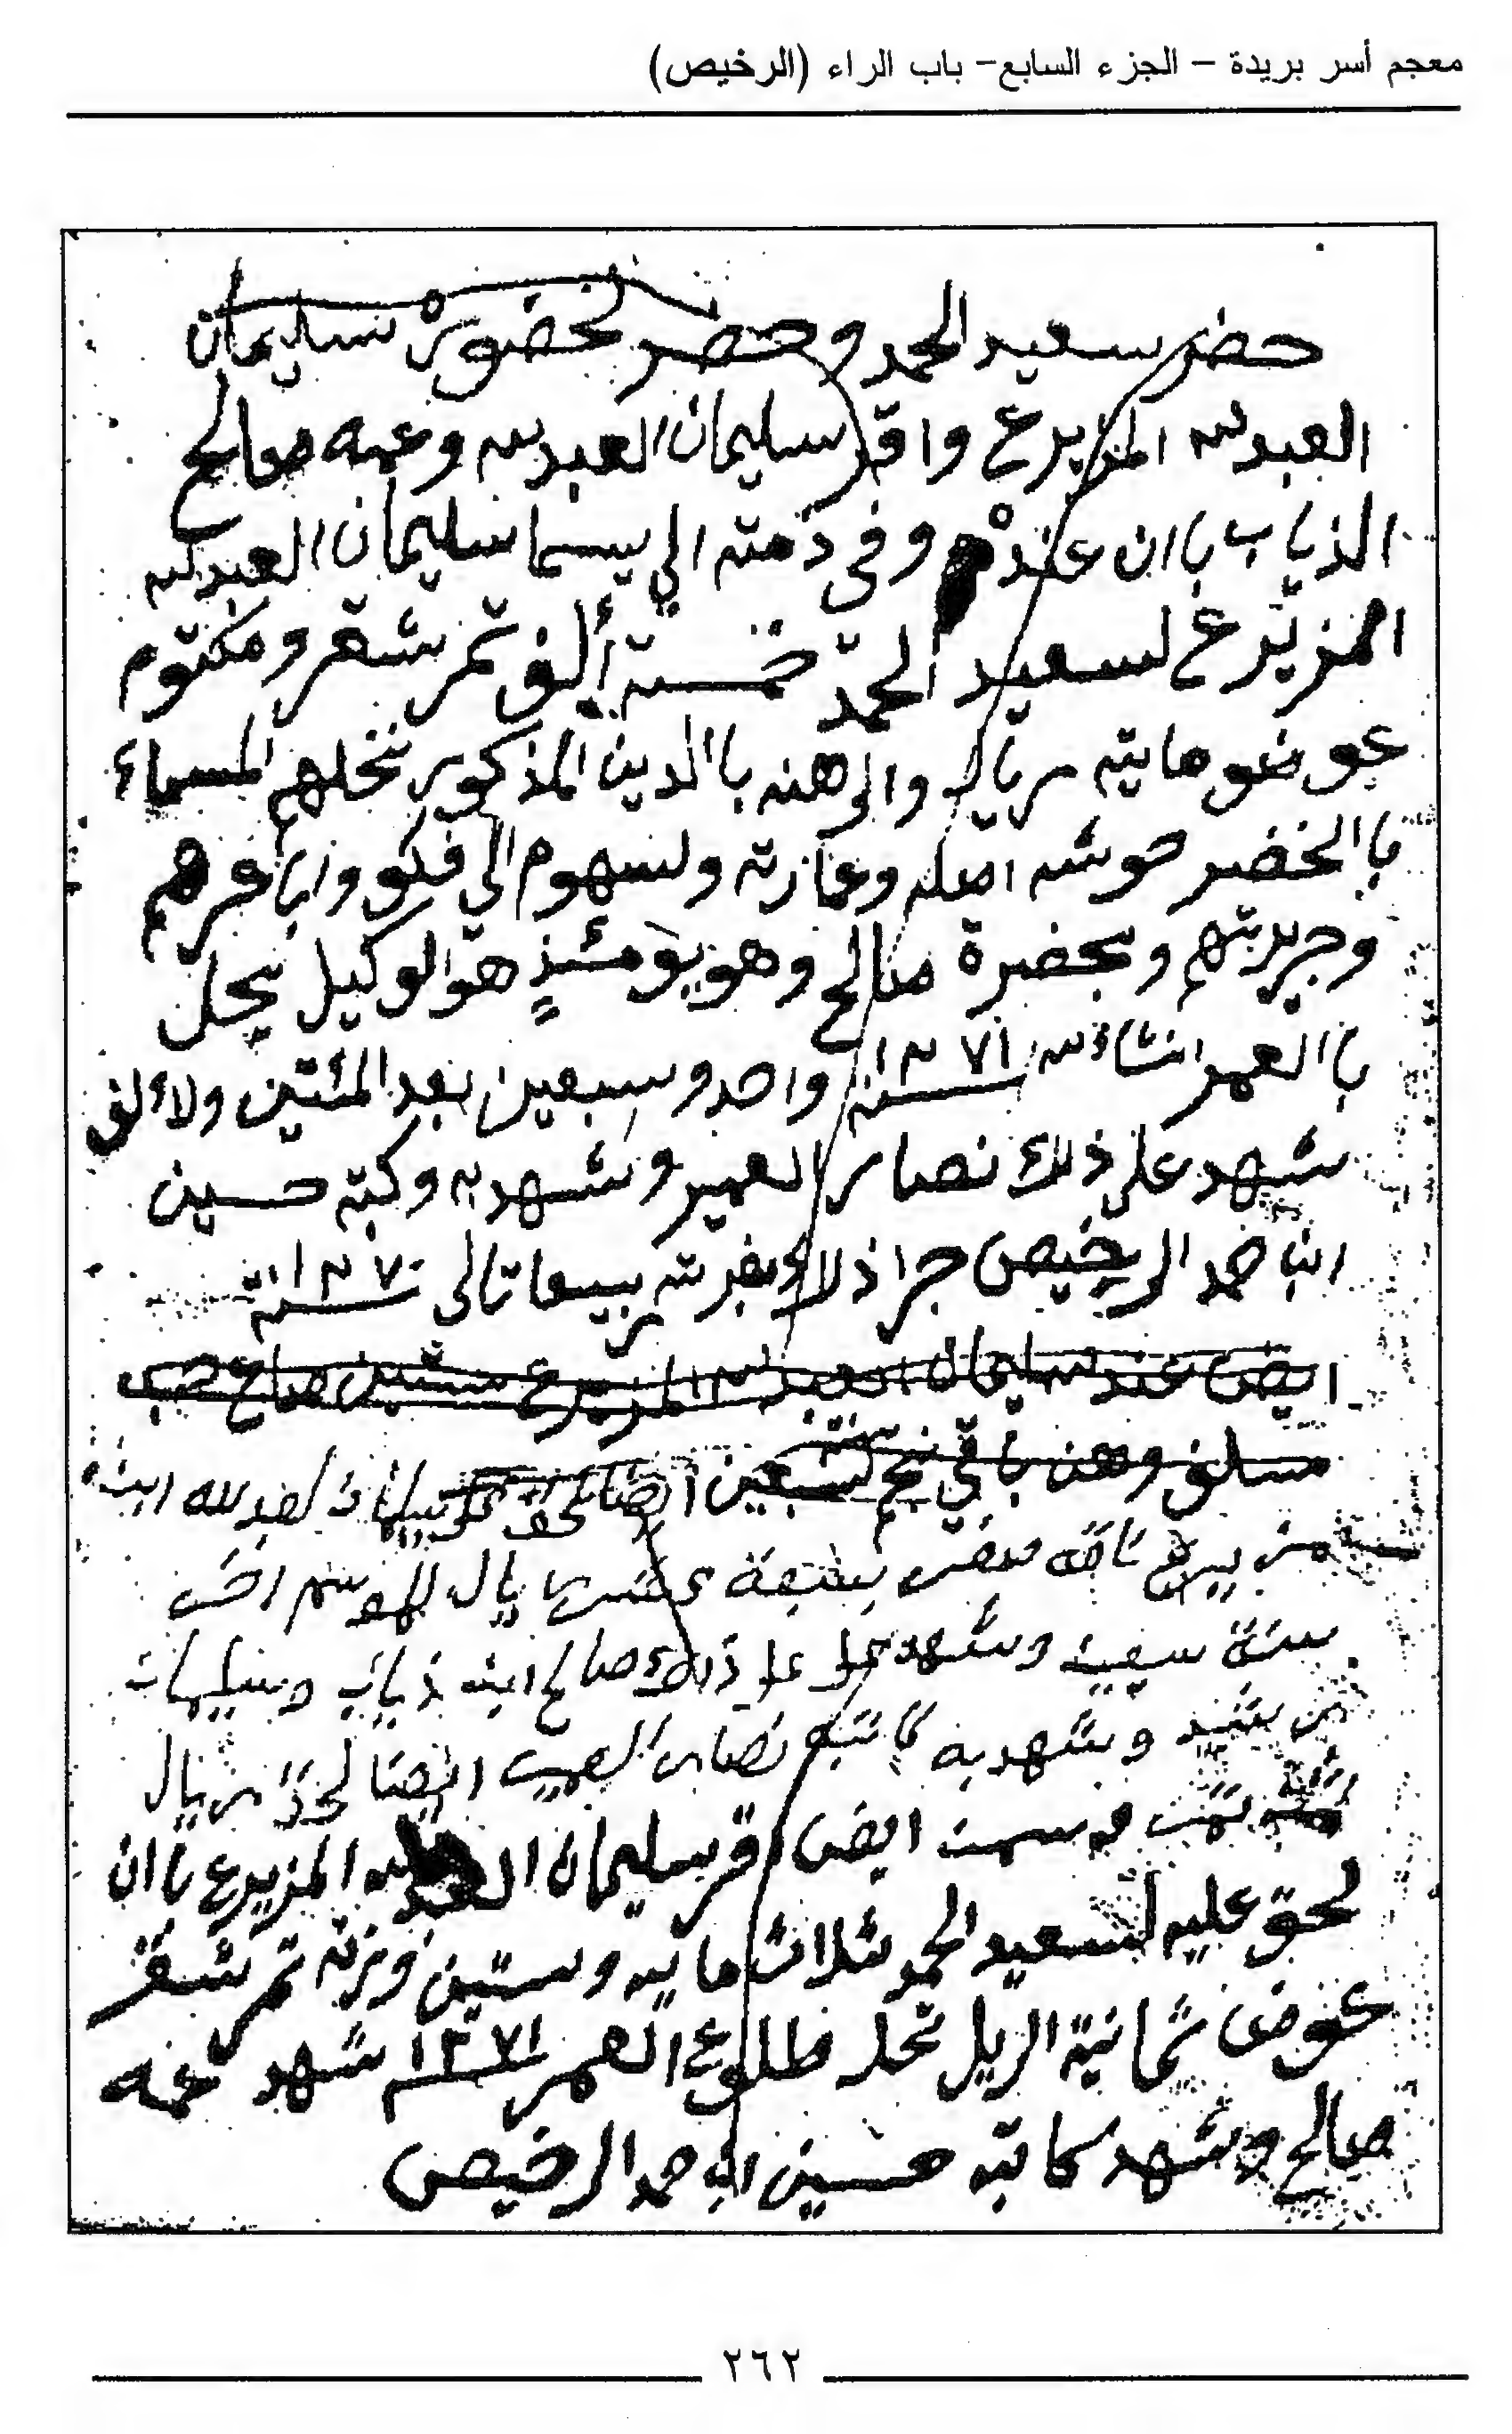 معجم أسر بريدة – الجزء السابع– باب الراء (الرخيص)
حضر سعيد الحمد وحضر لحضوره سليمان
العبدلله المزيرع واقر سليمان العبدلله وعمه صالح
الذياب باان عندهم وفي ذمته الي يسما سليمان العبدلله
المزيرع لسعيد الحمد خمسة ألف تمر شقر ومكتوم
عوض مايته ريال وارهنه باالدين المذكور نخلهم المسماء
باالخضر حوشه اصله وعمارته ولسهوم الي فكو واباعرهم
وجريرتهم وبحضرة صالح وهو يومئذٍ هو الوكيل يحل
باالعمر انشاءلله سنة ١٢٧١ واحد وسبعين بعد المئتين ولاءلف
شهد على ذلك نصار العمير وشهد به وكتبه حسين
ابن حمد الرخيص جرا ذلك بقرت ربيع تالي سنة ١٢٧٠
ايض عند سليمان العبدلله المزيرع ستين صاع حب
مسلف وهن باقي نجم سبعين ايضا لحق سليمان لعبدلله ابن
مزيرع ناقه بسبعة عشر ريال
سنة سبعين وشهد على ذلك صالح ابن ذياب وسليمان
بن رشيد وشهد به كاتبه نصار العمير ايضا لحق ريال
ايض اقر سليمان العبدلله المزيرع باان
لحق عليه لسعيد الحمد ثلاث مايه وستين وزنه تمر شقر
عوض ثمانية اريل تحل طلوع العمر ١٢٧١ شهد عمه
صالح وشهد كاتبه حسين ابن حمد الرخيص
٢٦٢